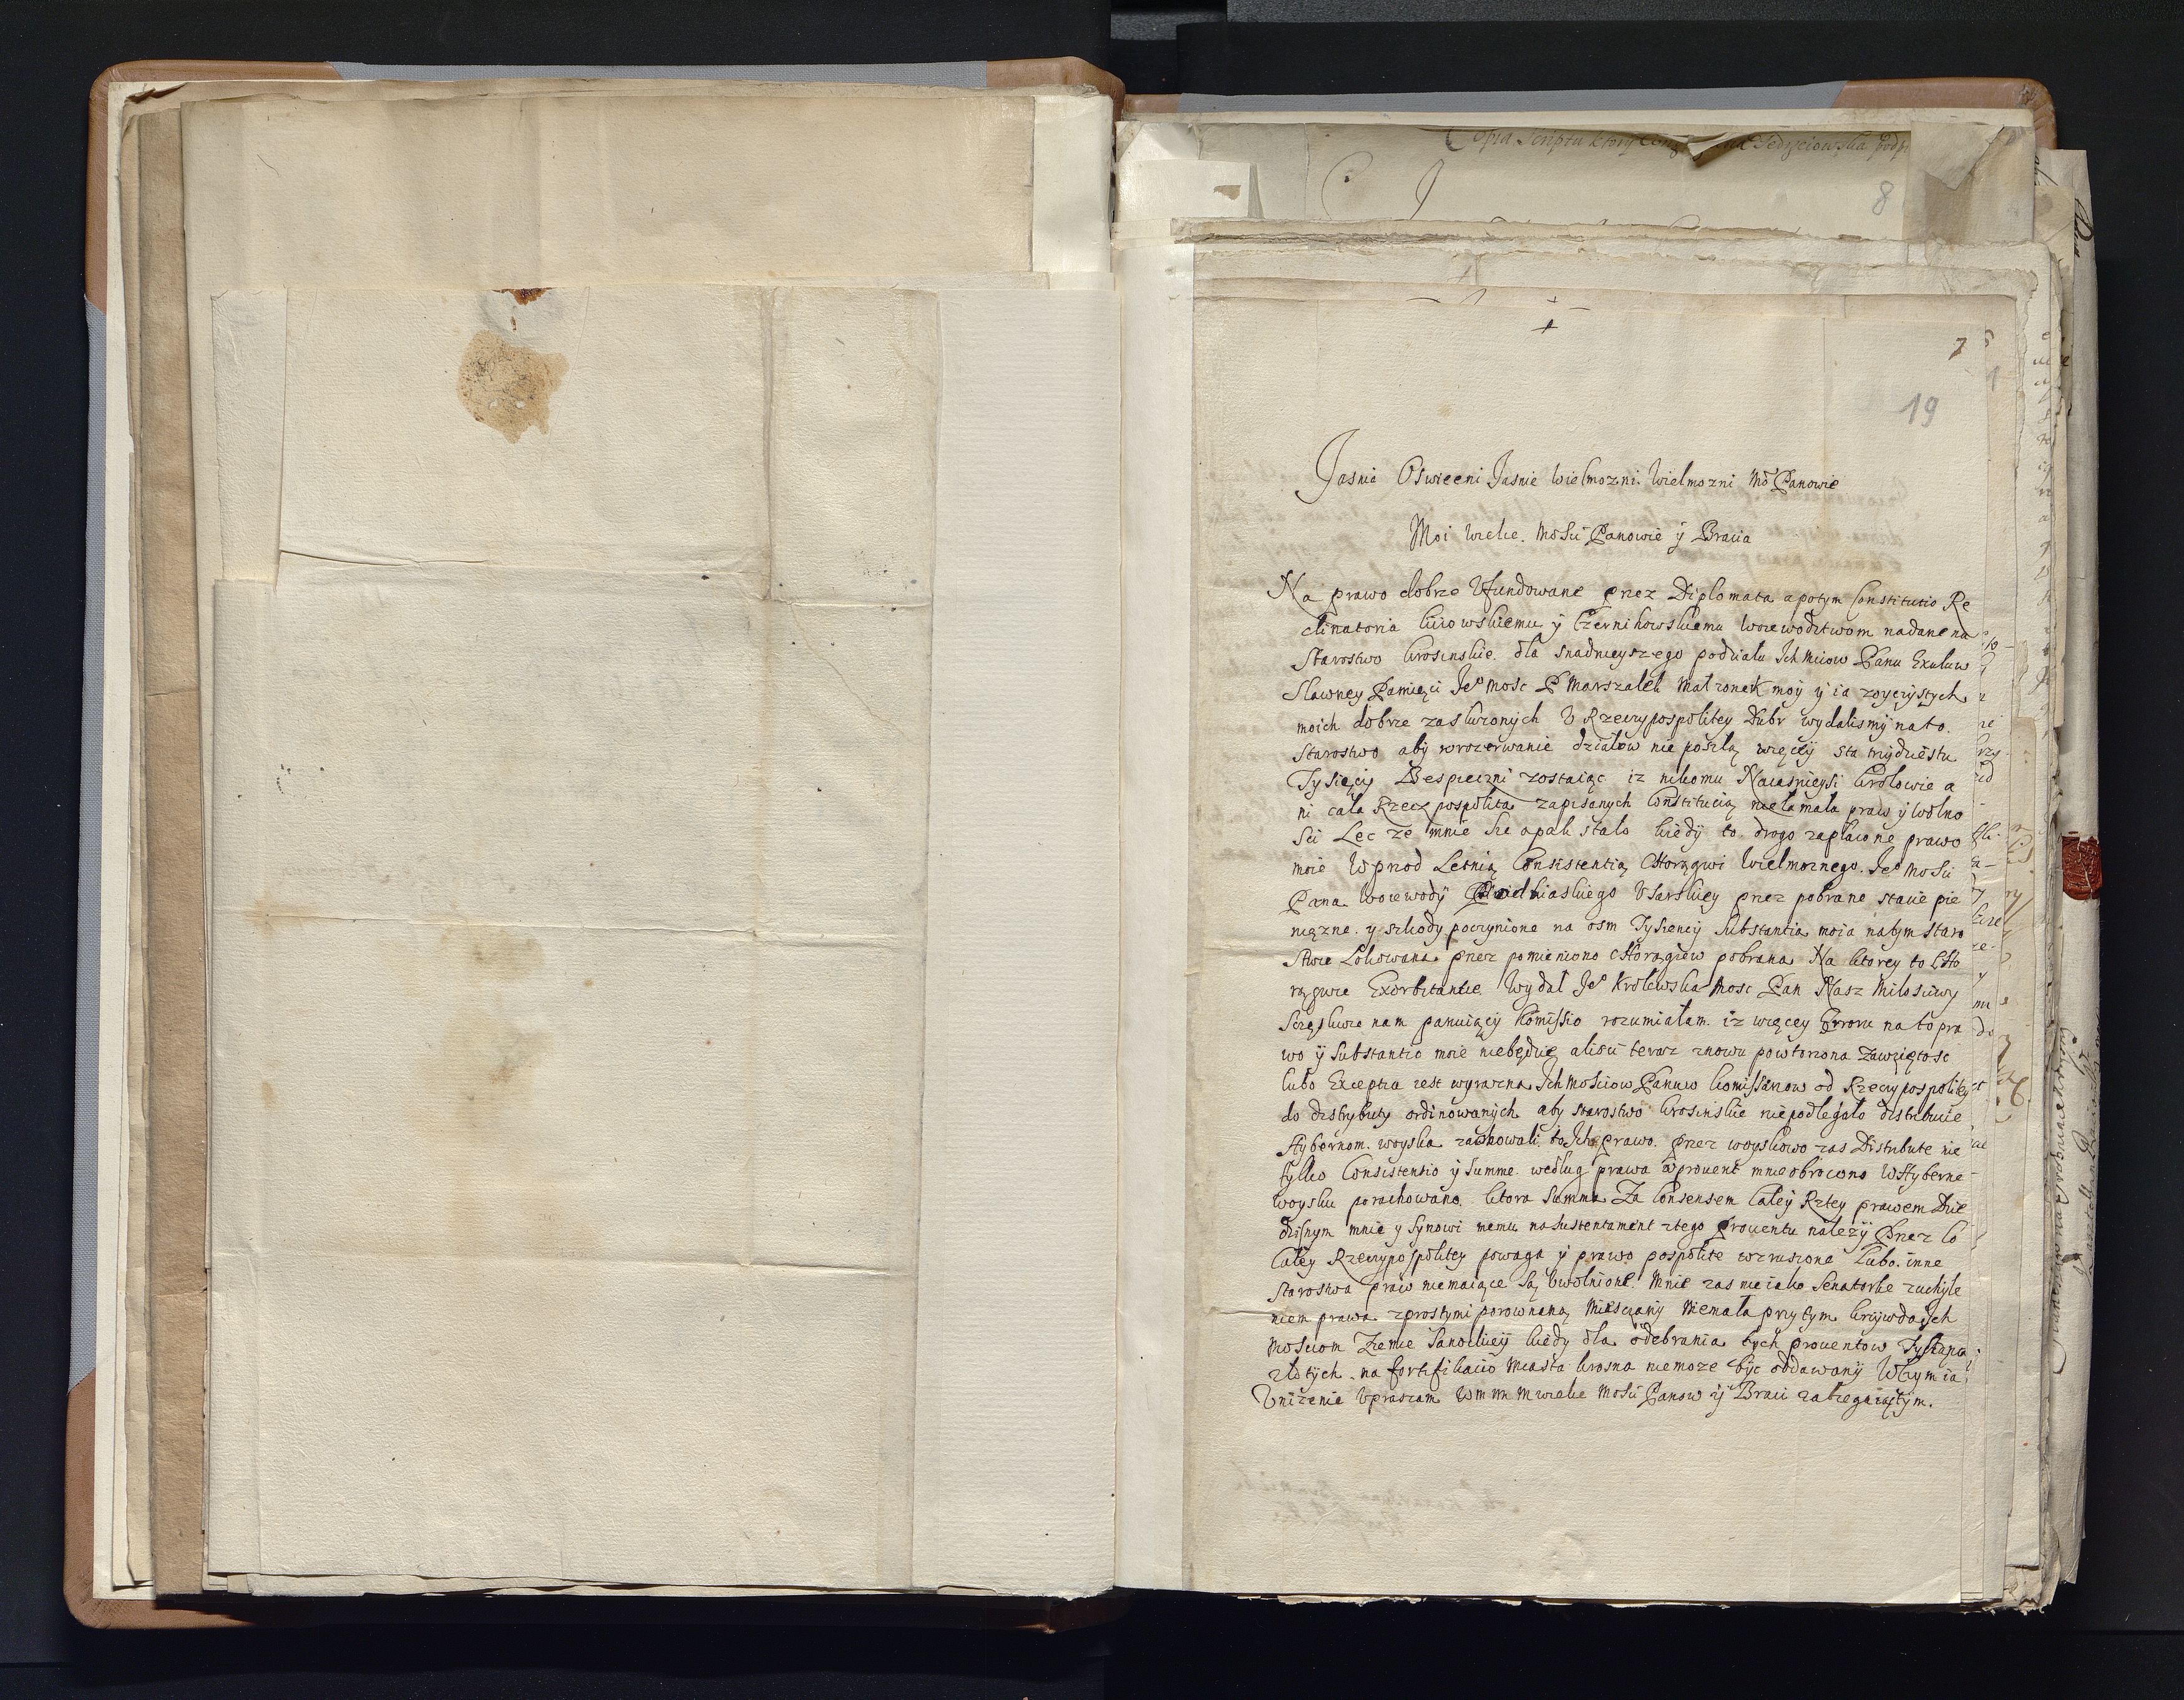 Copia Scriptu ktory
8
7
19
Jasnie Oswieceni Jasnie Wielmozni Wielmozni Mo Panowie
Moi Wielce Mosci Panowie y Bracia
Na prawo dobrze Ufundowane przez Diplomata a potym Constitutio Re
clinatoria kiiowskiemu y Czernihowskiemu Woiewodztwom nadane na
Starostwo krosinskie dla snadnieyszego podziału Ich Mciow Panu Exuluw
Slawney Pamięci Je° Mosc P Marszałek Małzonek moy y ia z oyczystych
moich dobrze zasłuzonych U Rzeczypospolitey Dubr wydalismy na to
Starostwo aby w rozerwanie działow nie poszlą więcey sta trzydziestu
Tysięcy Bespieczni zostaiąc iz nikomu Naiasnieysi krolowie a
ni cała Rzecz pospolita zapisanych Constitucią nie łamała praw y wolno
sci Lec ze mnie sie apak stało kiedy to drogo zapłacone prawo
moie W przod Letnią Consistentią Chorągwi Wielmoznego Je° Mosci
Pana Woiewody Podlaskiego Usarskiey przez pobrane stacie pie
nięzne y szkody poczynione na osm Tysiency Substantia moia na tym staro
stwie Lokowana przez pomieniono Chorągiew pobrana Na ktorey to Cho
rągwie Exorbitantie Wydał Je° Krolewska Mosc Pan Nasz Miłosciwy
Sczęsliwie nam panuiący Komissio rozumiałam iz więcey Erroru na to pra
wo y Substantio moie niebędzie alisci teraz znowu powtorzona zawziętosc
lubo Exceptia iest wyrazna Ich Mosciow Panuw komissarzow od Rzeczypospolitey
do distrybuty ordinowanych aby starostwo krosinskie niepodlegało distribucie
Hybernom woyska zachowali to Ich prawo przez woyskowo zas Distribute nie
tylko Consistentio y Summe według prawa a prouent mnie obrocono W Hyberne
woysku porachowano ktora Summa Za Consensem Całey Rztey prawem Dzie
dzisnym mnie y Synowi memu na sustentament z tego prouentu nalezy Przez co
Całey Rzeczypospolitey powaga y prawo pospolite wzruszone Lubo inne
Starostwa praw niemaiące Są Uwolnione Mnie zas nie iako Senatorke z uchyle
niem prawa z prostymi porownaną Miesczany Niemała przy tym krzywda Ich
Mosciom Ziemie Sanockiey kiedy dla odebrania tych prouentow Tysiąca
złotych na fortifikacio Miasta krosna niemoze byc oddawany W czym ia
Unizenie Upraszam WM MM wielce Mosci Panow y Braci